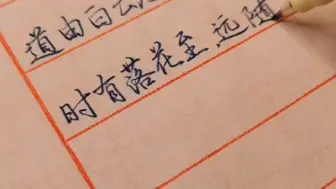 道由白云
时有落花至 远随